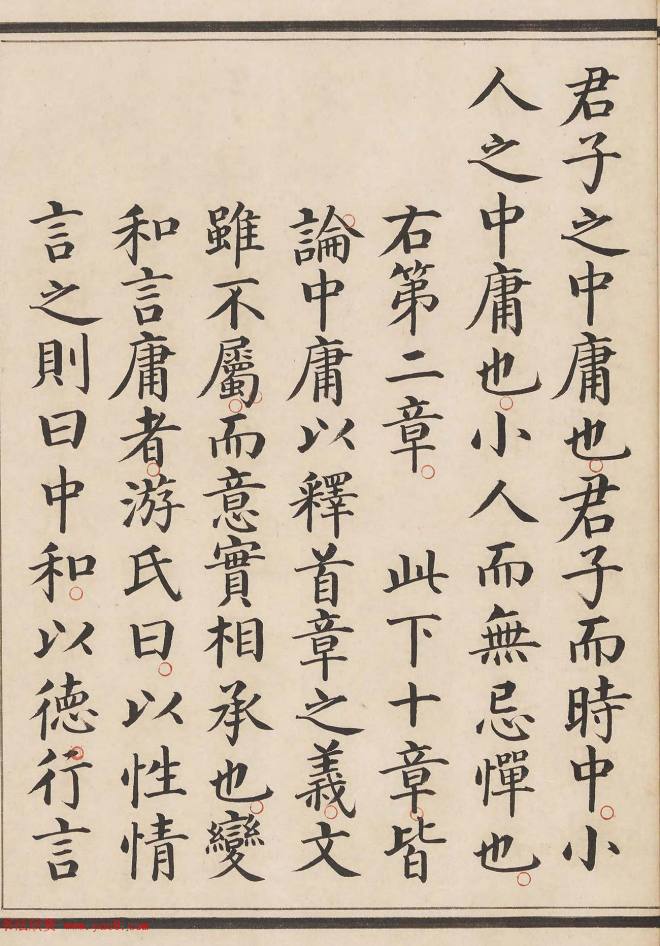 君子之中庸也君子而時中小
人之中庸也小人而無忌憚也
右第二章 此下十章皆
論中庸以釋首章之義文
雖不屬而意實相承也變
和言庸者游氏曰以性情
言之則曰中和以德行言